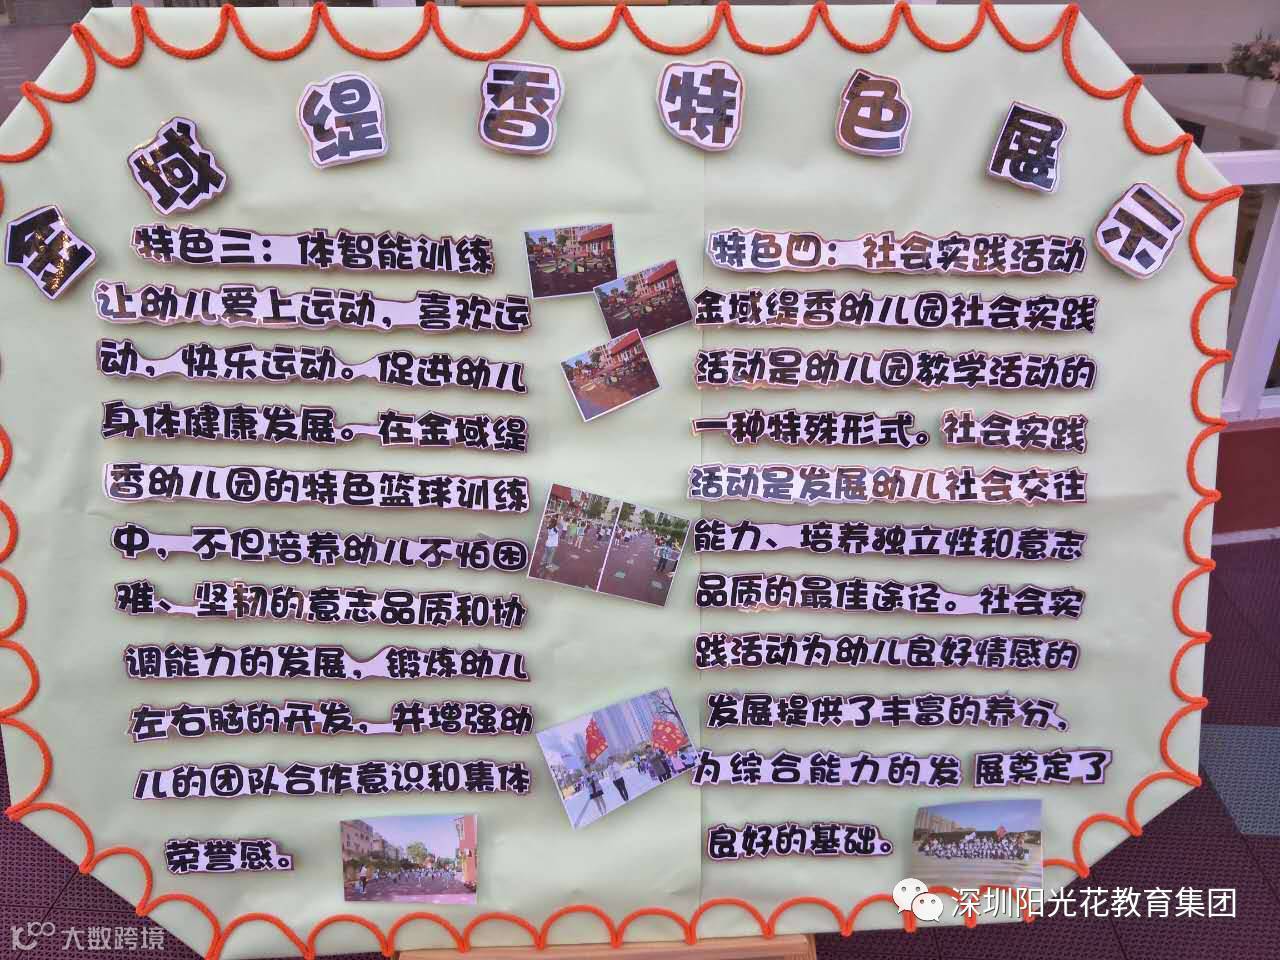 金域缇香特色展示
特色三：体智能训练
让幼儿爱上运动，喜欢运
动，快乐运动。促进幼儿
身体健康发展。在金域缇
香幼儿园的特色篮球训练
中，不但培养幼儿不怕困
难、坚韧的意志品质和协
调能力的发展，锻炼幼儿
左右脑的开发，并增强幼
儿的团队合作意识和集体
荣誉感。
特色四：社会实践活动
金域缇香幼儿园社会实践
活动是幼儿园教学活动的
一种特殊形式。社会实践
活动是发展幼儿社会交往
能力、培养独立性和意志
品质的最佳途径。社会实
践活动为幼儿良好情感的
发展提供了丰富的养分、
为综合能力的发 展奠定了
良好的基础。
深圳阳光花教育集团
大数跨境